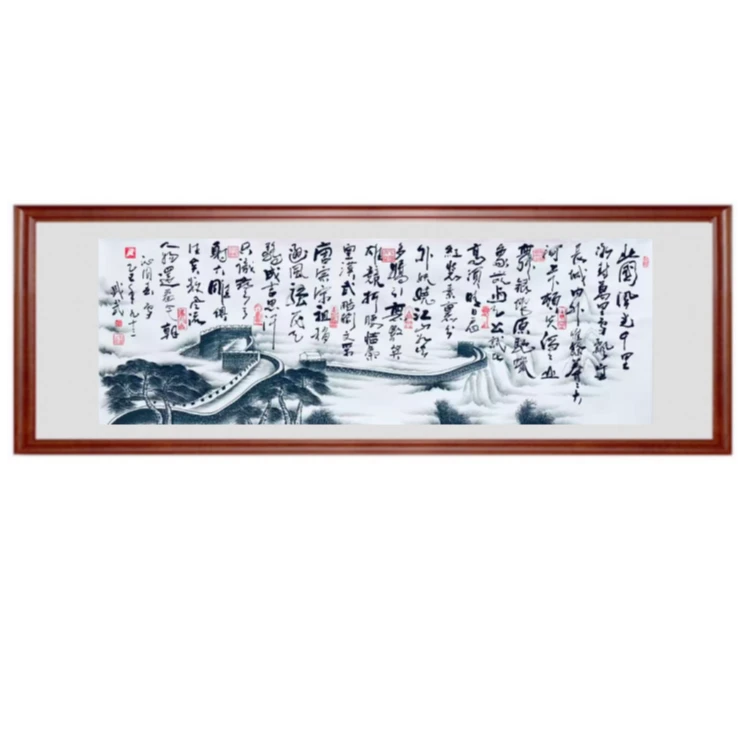 北國風光千里
冰封萬里雪飄望
長城内外惟餘莽莽大
河上下頓失滔滔山
舞銀蛇原馳蠟
象欲与天公試比
高須晴日看
紅裝素裹分
外妖嬈江山如此
多嬌引無數英
雄競折腰惜秦
皇漢武略輸文采
唐宗宋祖稍
遜風騷一代天
驕成吉思汗
只識彎弓
射大雕俱
往矣數風流
人物還看今朝
沁園春雪
乙巳年九十二
武